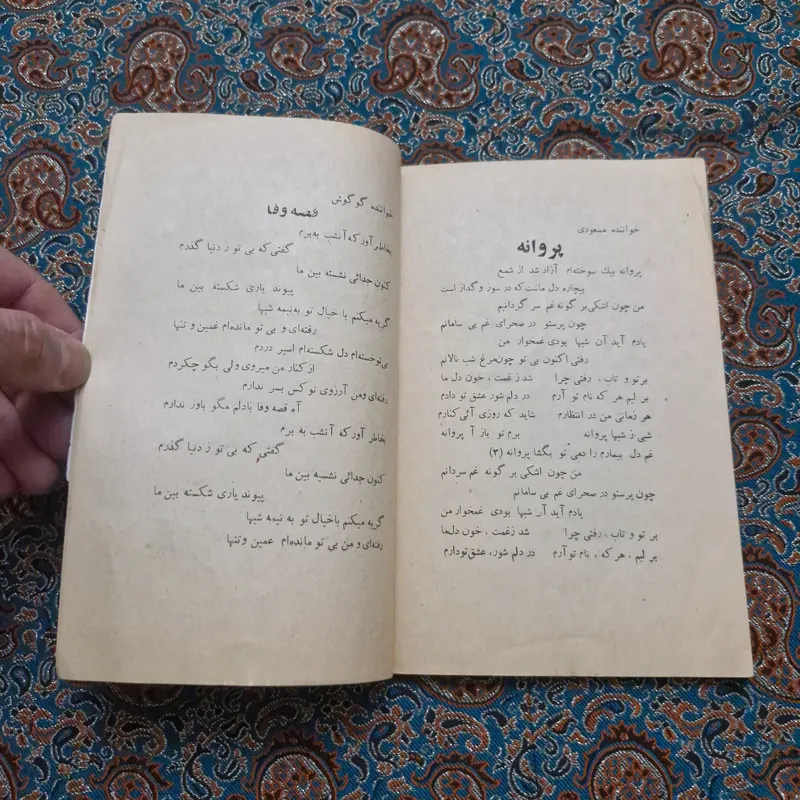 خواننده مسعودی
پروانه
پروانه بیك سوخته‌ام آزاد شد از شمع
بیچاره دل ماست که در سوز و گداز است
من چون اشکی بر گونه غم سر گردانیم
چون پرستو در صحرای غم بی سامانم
یادم آید آن شبها بودی غمخوار من
رفتی اکنون بی تو چون مرغ شب نالانم
بر تو و تاب ، رفتی چرا شد زغمت ، خون دل ما
بر لبم هر که نام تو آرم در دلم شور عشق تو دادم
هر زمانی من در انتظارم شاید که روزی آئی کنارم
شبی ز شبها پروانه برم تو باز آ پروانه
غم دل بیمارم را دمی تو بگشا پروانه (۳)
من چون اشکی بر گونه غم سردانم
چون پرستو در صحرای غم بی سامانم
یادم آید آن شبها بودی غمخوار من
بر تو و تاب ، رفتی چرا شد زغمت ، خون دل‌ما
بر لبم ، هر که ، نام تو آرم در دلم شور، عشق تو دارم
خواننده گوگوش
قصه وفا
بخاطر آور که آنشب به‌برم
گفتی که بی تو ز دنیا گذرم
کنون جدائی نشسته بین ما
پیوند یاری شکسته بین ما
گریه میکنم با خیال تو به‌نیمه شبها
رفته‌ای و بی تو مانده‌ام غمین و تنها
بی‌تو خسته‌ام دل شکسته‌ام اسیر دردم
از کنار من میروی ولی بگو چکردم
رفته‌ای ومن آرزوی تو کس بسر ندارم
آه قصه وفا بادلم مگو باور ندارم
بخاطر آور که آنشب به برم
گفتی که بی تو ز دنیا گذرم
کنون جدائی نشسیه بین ما
پیوند یاری شکسته بین ما
گریه میکنم باخیال تو به نیمه شبها
رفته‌ای و من بی تو مانده‌ام غمین وتنها